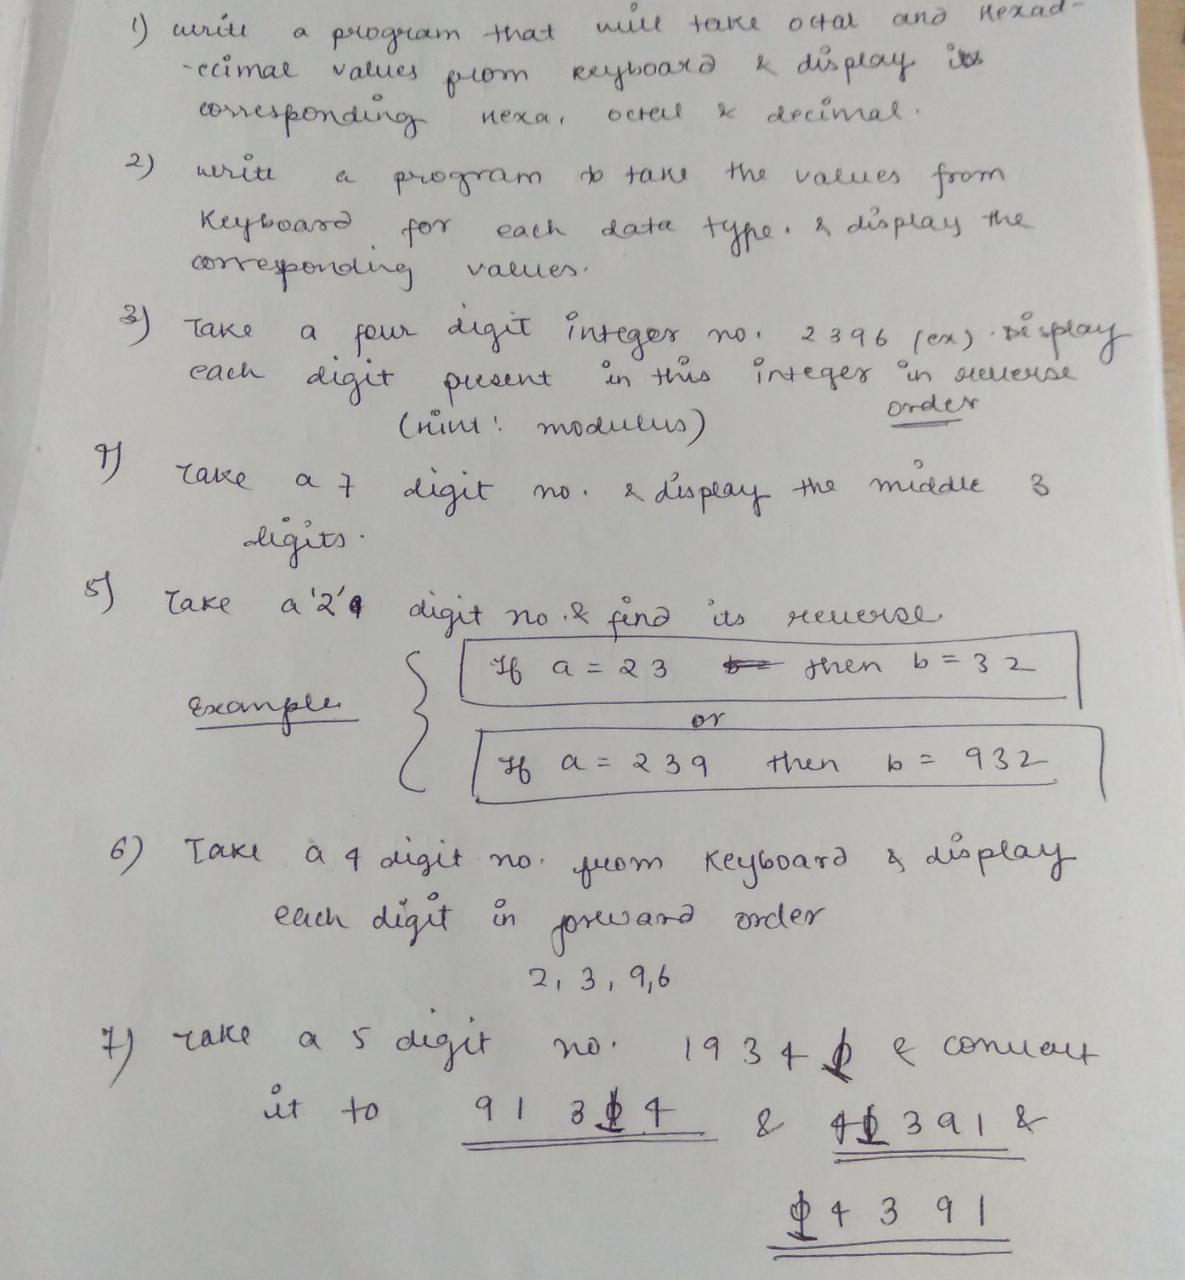 1) write a program that will take octal and Hexad-
-ecimal values from keyboard & display its
corresponding hexa, octal & decimal.
2) write a program to take the values from
Keyboard for each data type. & display the
corresponding values.
3) Take a four digit integer no. 2396 (ex). Display
each digit present in this integer in reverse
order
(hint: modulus)
4) Take a 7 digit no. & display the middle 3
digits.
5) Take a '2' digit no. & find its reverse
Example { If a = 23 then b = 32
or
If a = 239 then b = 932
6) Take a 4 digit no. from Keyboard & display
each digit in forward order
2, 3, 9, 6
7) Take a 5 digit no. 1934 & convert
it to 913 4 & 4 391 &
4391